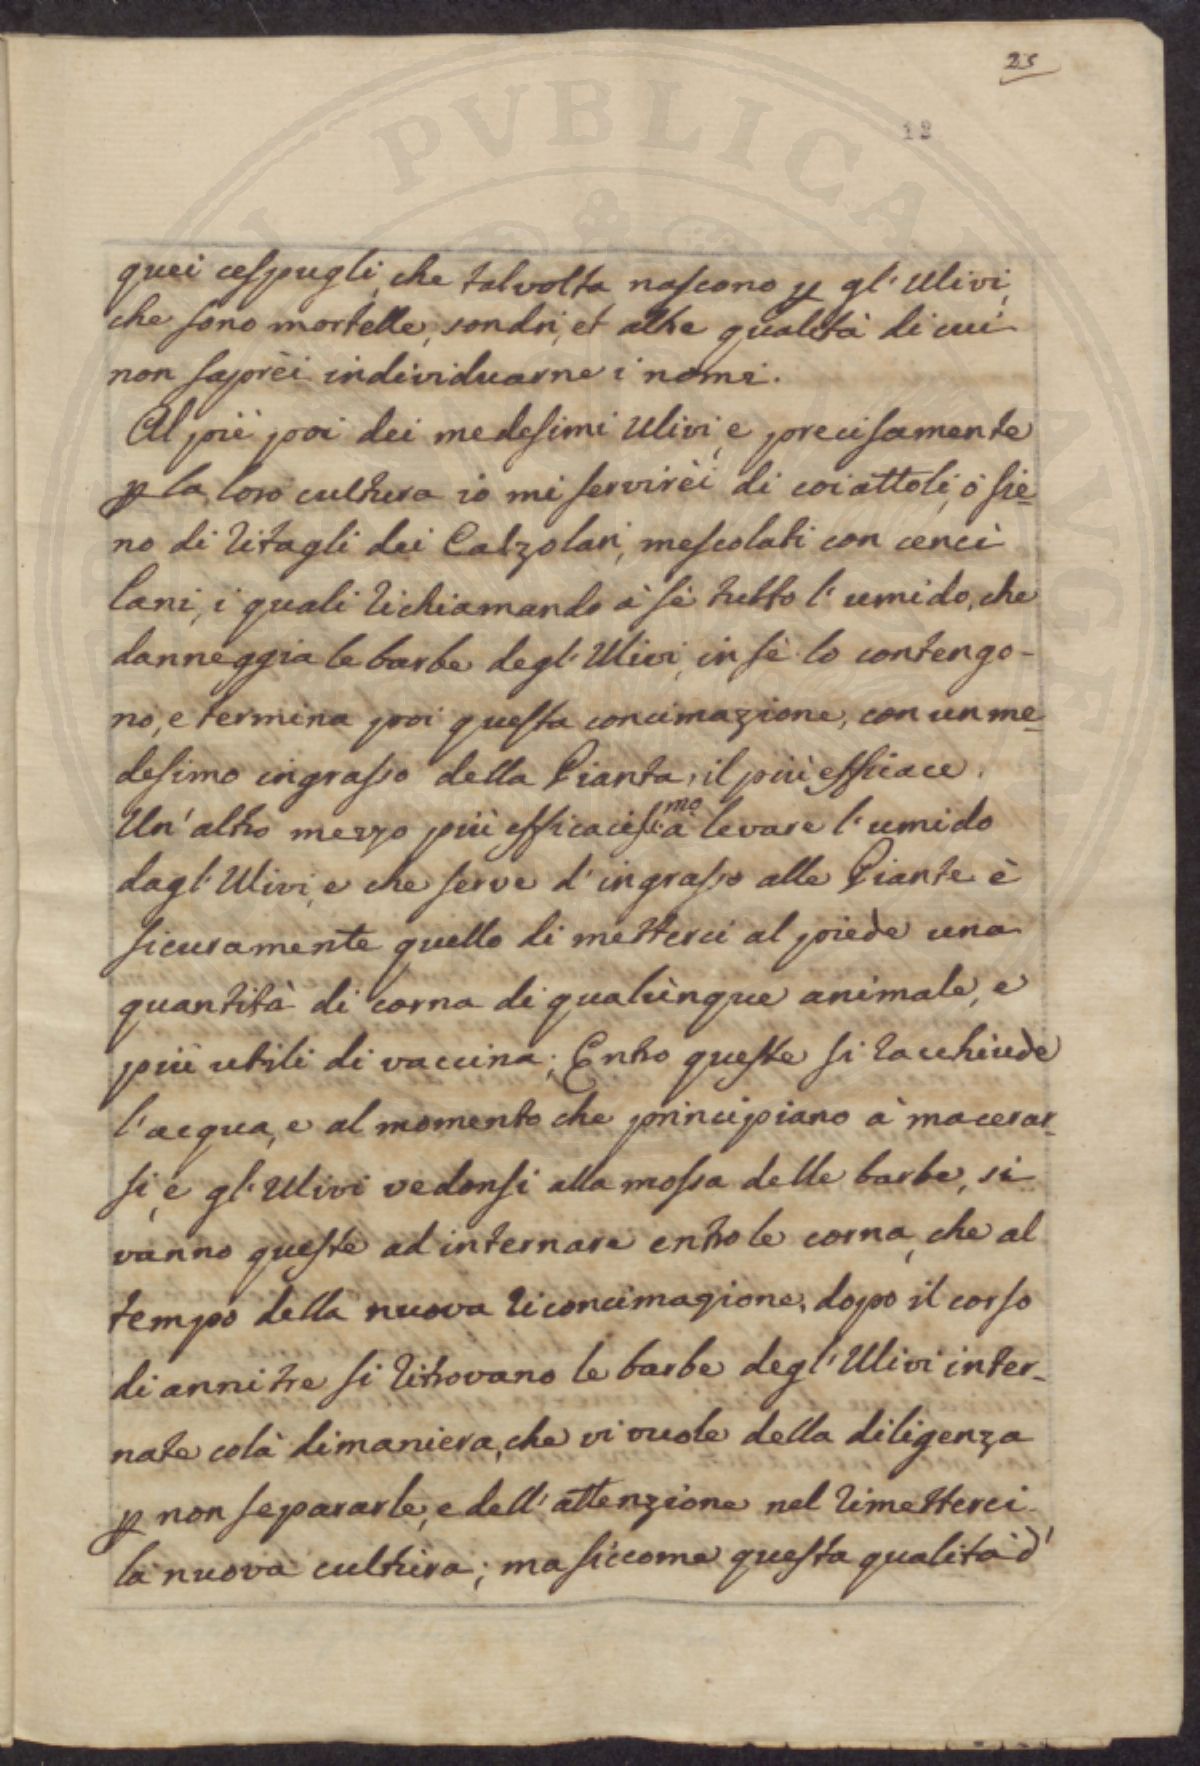 25
12
quei cespugli, che talvolta nascono p gl' Ulivi,
che sono mortelle, sondri, et altre qualità di cui
non saprèi individuarne i nomi.
Al piè poi dei medesimi Ulivi, e precisamente
p la loro cultura io mi servirèi di coiattoli, ò sie-
no di ritagli dei Calzolari, mescolati con cenci
lani, i quali richiamando à sè tutto l' umido, che
danneggia le barbe degl' Ulivi, in sè lo contengo-
no, e termina poi questa concimazione, con un me-
desimo ingrasso della Pianta, il più efficace.
Un' altro mezzo più efficacissmo à levare l' umido
dagl' Ulivi, e che serve d' ingrasso alle Piante è
sicuramente quello di metterci al piede una
quantità di corna di qualùnque animale, e
più utili di vaccina; Entro queste si racchiude
l' acqua, e al momento che principiano à macerar-
si, e gl' Ulivi vedonsi alla mossa delle barbe, si
vanno queste ad internare entro le corna, che al
tempo della nuova riconcimazione, dopo il corso
di anni tre si ritrovano le barbe degl' Ulivi inter-
nate colà dimaniera, che vi vuole della diligenza
p non separarle, e dell' attenzione nel rimetterci
la nuova cultura; ma siccome questa qualità d'